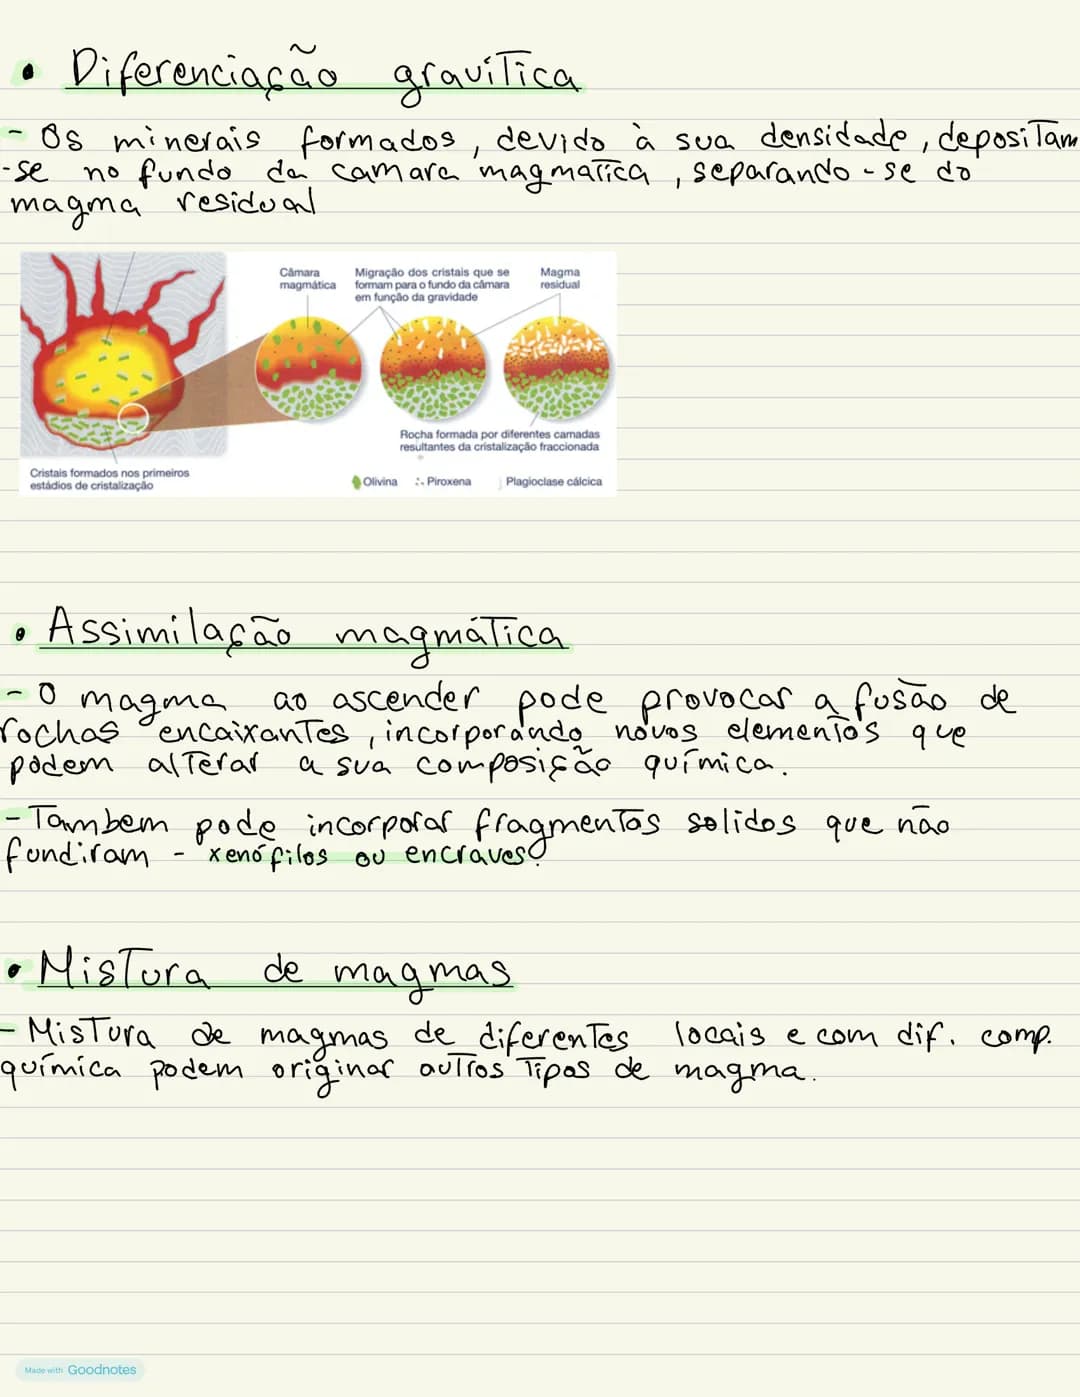 • Diferenciação gravítica
- Os minerais formados, devido à sua densidade, depositam
-se no fundo da camara magmatica, separando-se do
magma residual
Câmara
magmática
Migração dos cristais que se
formam para o fundo da câmara
em função da gravidade
Magma
residual
Rocha formada por diferentes camadas
resultantes da cristalização fraccionada
Cristais formados nos primeiros
estádios de cristalização
Olivina Piroxena Plagioclase cálcica
• Assimilação magmática
- O magma ao ascender pode provocar a fusão de
rochas encaixantes, incorporando novos elementos que
podem alterar a sua composição química.
- Tambem pode incorporar fragmentos solidos que não
fundiram - xenófilos ou encraves.
• Mistura de magmas
- Mistura de magmas de diferentes locais e com dif. comp.
química podem originar outros tipos de magma.
Made with Goodnotes